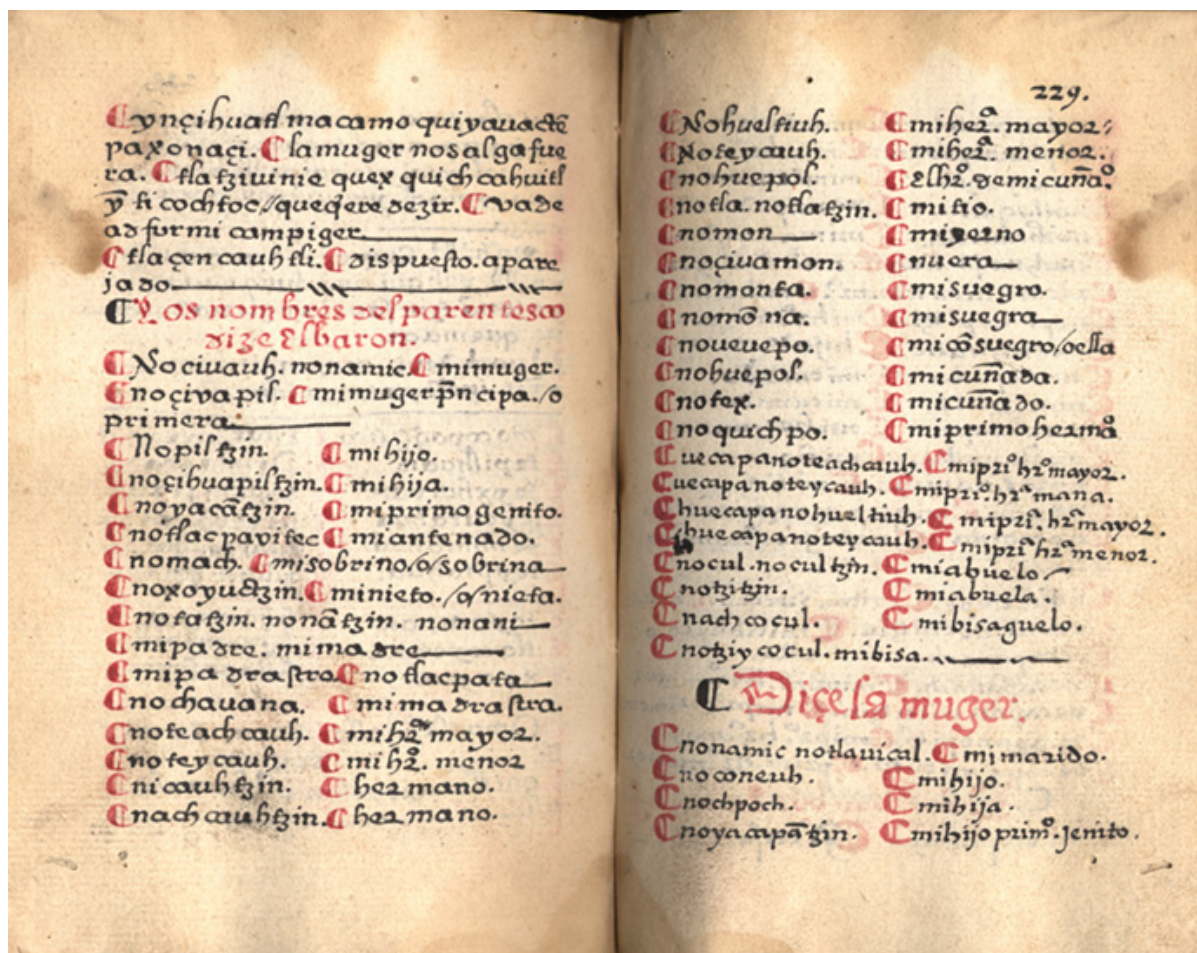 ynçihuatl ma camo quiyavactē
paxonaçi. la muger no salga fue
ra. tlatzivinie quex quich cahuitl
ȳ ti cochtoc, que q̄ere dezir. vade
ad formi cam piger
tlaçencauhtli. dispuesto. apare
jado
Los nombres del parentesco
dize El baron.
No civauh. nonamic. mi muger.
noçivapil. mi muger p̄ncipa. /o
primera
Nopiltzin. mi hijo.
noçihuapiltzin. mi hija.
noyacātzin. mi primo genito.
notlacpavitec mi antenado.
nomach. mi sobrino /o/ sobrina
noxoyuctzin. mi nieto. /o/ nieta.
notatzin. nonātzin. nonani
mi padre. mi madre
mi padrastro notlacpata
nochauana. mi madrastra.
noteachcauh. mi hr̄o mayor.
noteycauh. mi hr̄o. menor
nicauhtzin. hermano.
nachcauhtzin. hermano.
229.
Nohueltiuh. mi her̄a. mayor.
Noteycauh. mi her̄a. menor.
nohuepol. El hr̄o. de mi cuñā.
notla. notlatzin. mi tio.
nomon mi yerno
noçivamon. nuera
nomonta. mi suegro.
nomōna. mi suegra
noueuepo. mi cōsuegro /o ella
nohuepol. mi cuñada.
notex. mi cuñado.
noquichpo. mi primo hermāo
uecapanoteachcauh. mi prio hr̄o mayor.
uecapanoteycauh. mi pria. hr̄a mana.
huecapanohueltiuh. mi pria. hr̄a mayor.
huecapanoteycauh. mi pria hr̄a menor.
nocul. nocultzin. mi abuelo
notzitzin. mi abuela.
nachcocul. mi bisaguelo.
notziycocul. mi bisa.
Diçe la muger.
nonamic notlavical. mi marido.
noconeuh. mi hijo.
nochpoch. mi hija.
noyacapātzin. mi hijo primo. jenito.